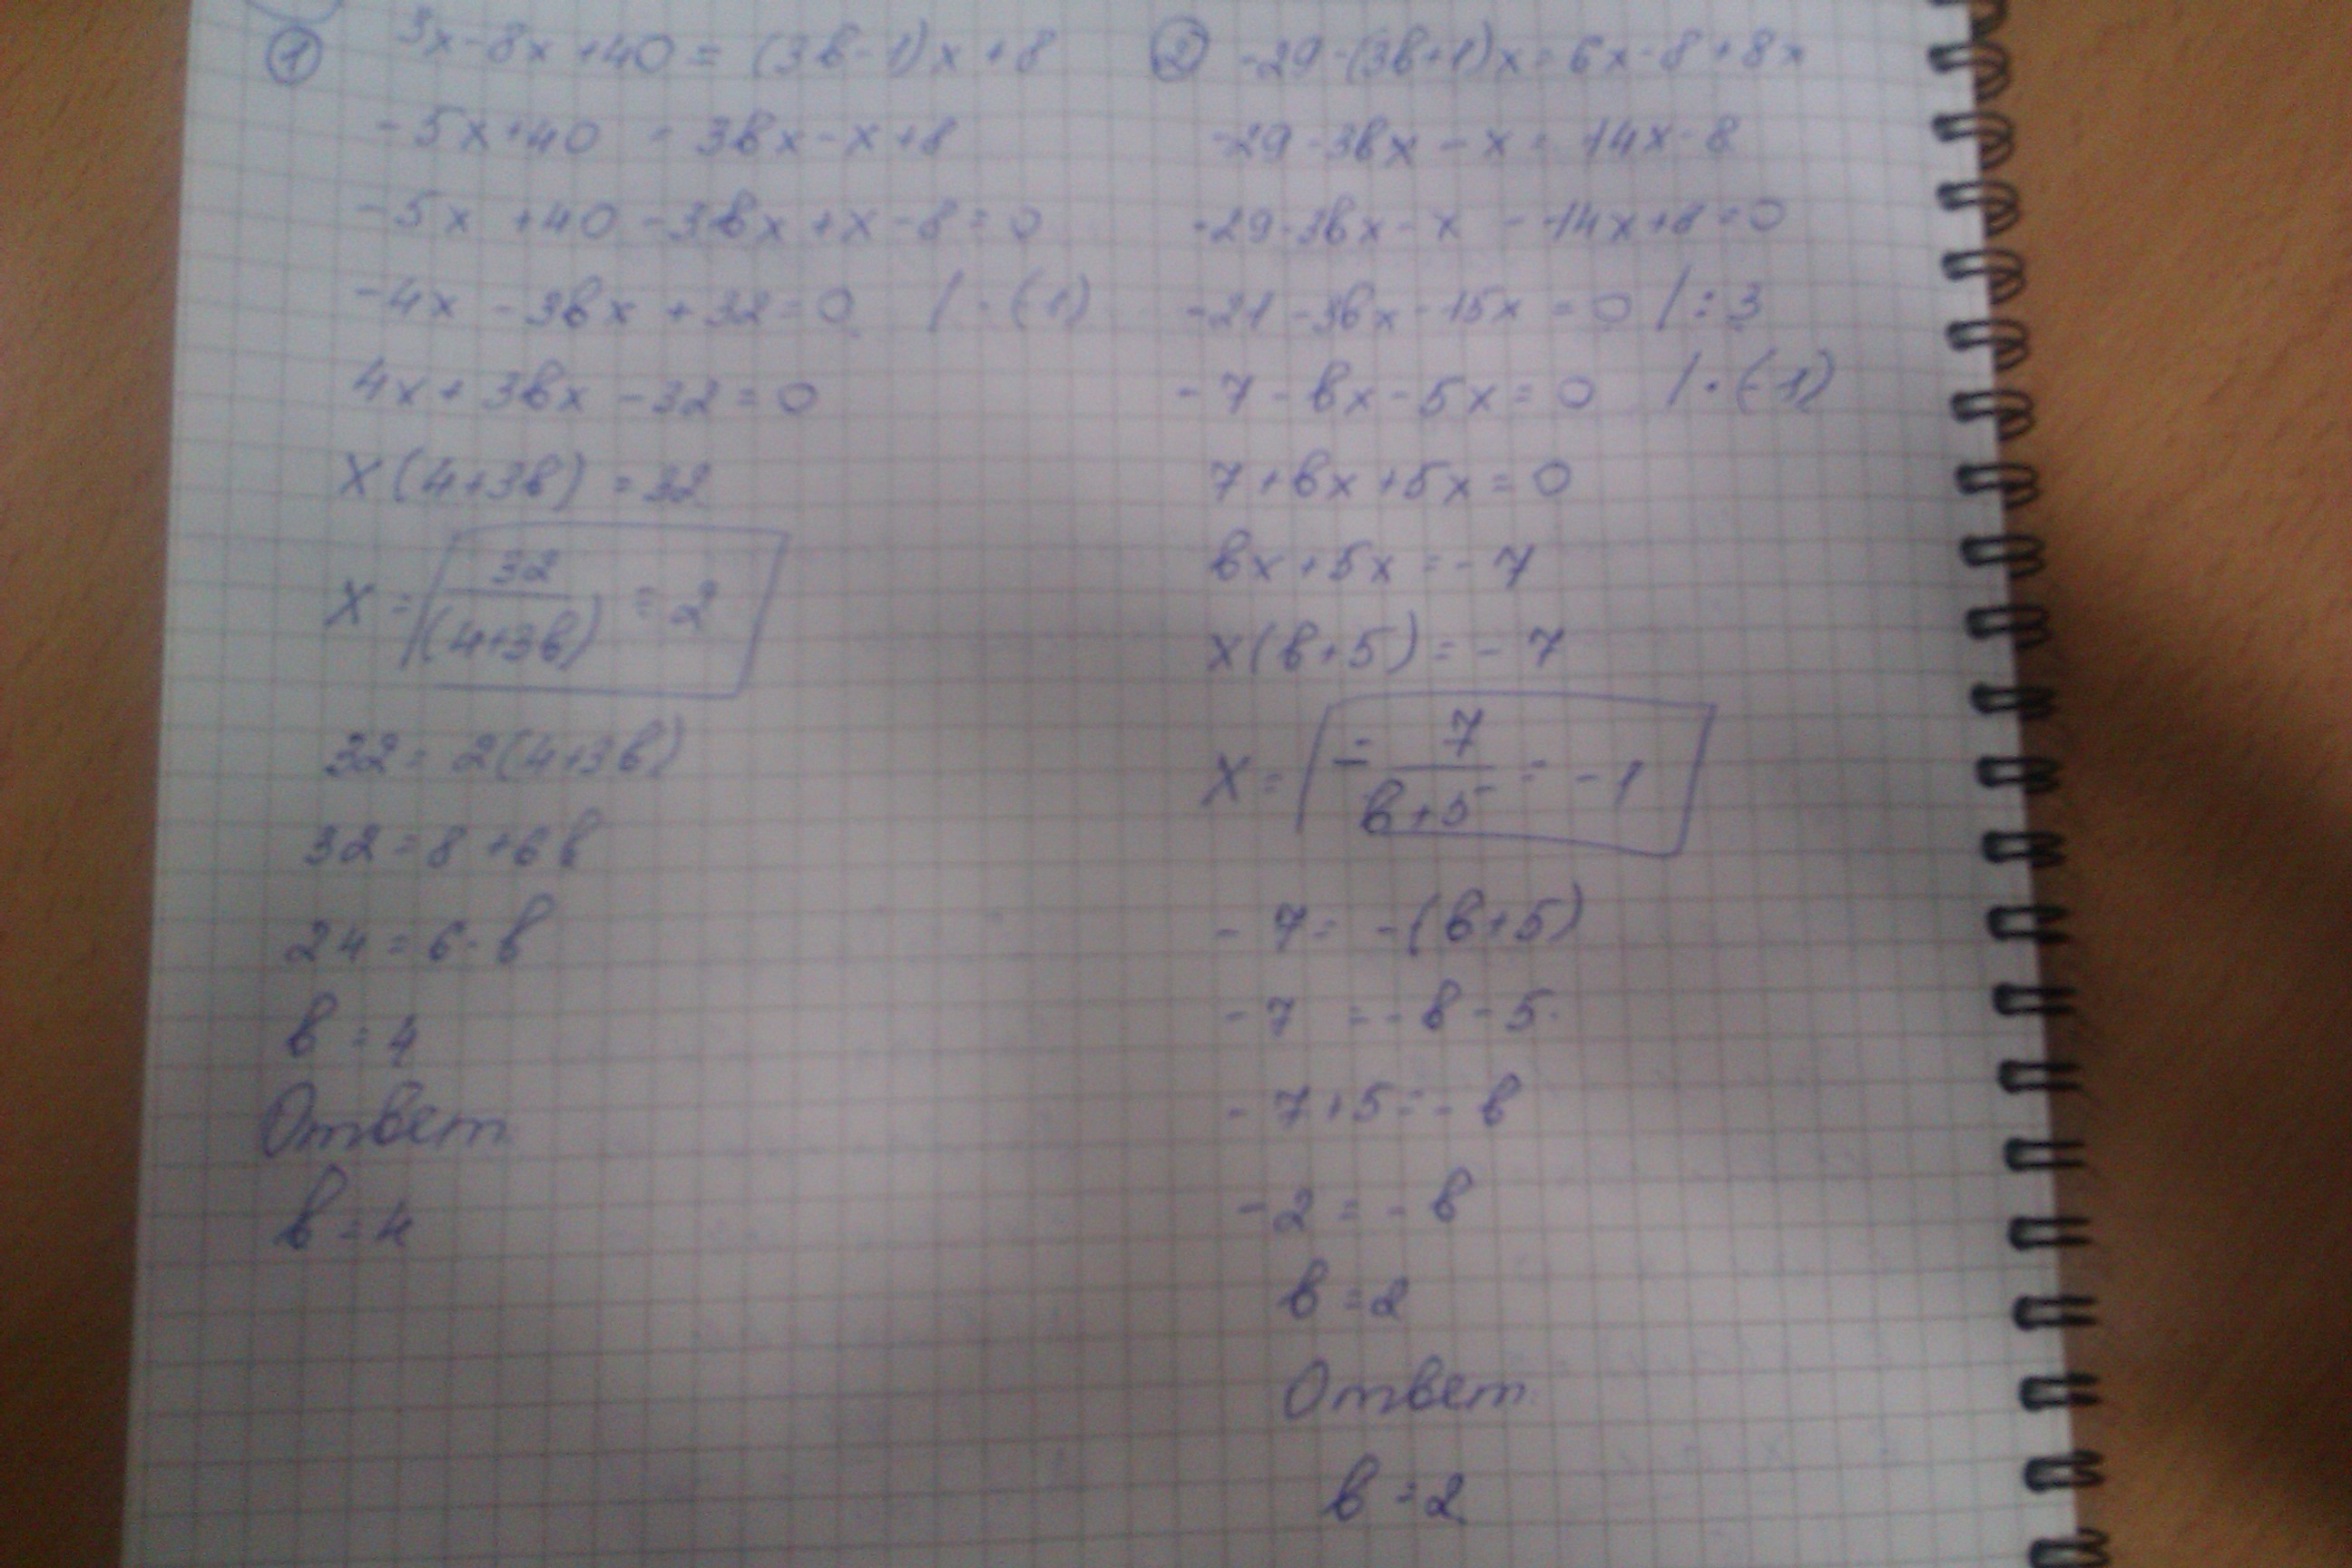 ① 3x-8x+40=(3в-1)x+8
-5x+40 = 3вx-x+8
-5x +40-3вx+x-8=0
-4x -3вx+32=0 /·(-1)
4x+3вx-32=0
x(4+3в)=32
x= 32/(4+3в) = 2
32=2(4+3в)
32=8+6в
24=6·в
в=4
Ответ
в=4
② -29-(3в+1)x=6x-8+8x
-29-3вx-x=14x-8
-29-3вx-x -14x+8=0
-21-3вx-15x=0 /:3
-7-вx-5x=0 /·(-1)
7+вx+5x=0
вx+5x=-7
x(в+5)=-7
x= - 7/в+5 = -1
-7= -(в+5)
-7 =-в-5
-7+5=-в
-2=-в
в=2
Ответ
в=2